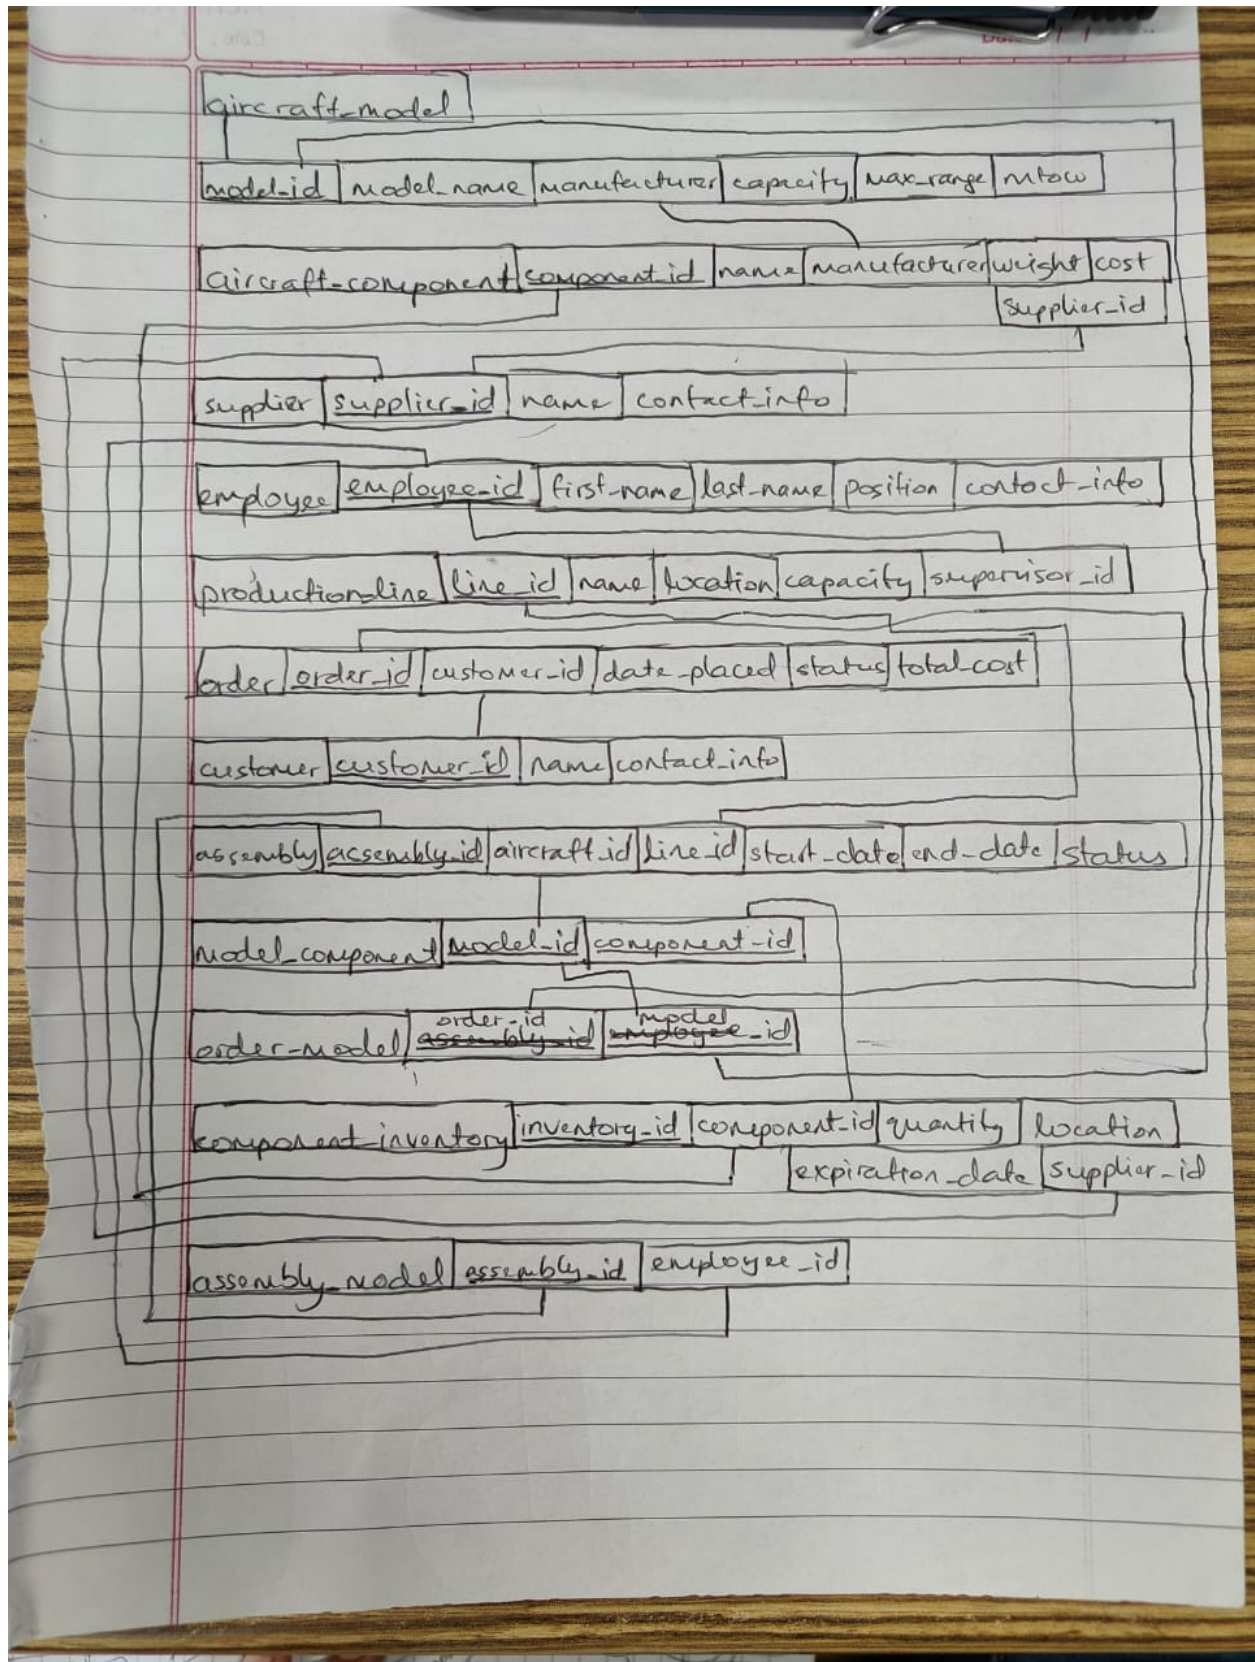 aircraft_model
model_id model_name manufacturer capacity max_range mtow
aircraft_component component_id name manufacturer weight cost
supplier_id
supplier supplier_id name contact_info
employee employee_id first_name last_name position contact_info
production_line line_id name location capacity supervisor_id
order order_id customer_id date_placed status total_cost
customer customer_id name contact_info
assembly assembly_id aircraft_id line_id start_date end_date status
model_component model_id component_id
order_id model
order_model assembly_id employee_id
component_inventory inventory_id component_id quantity location
expiration_date supplier_id
assembly_model assembly_id employee_id